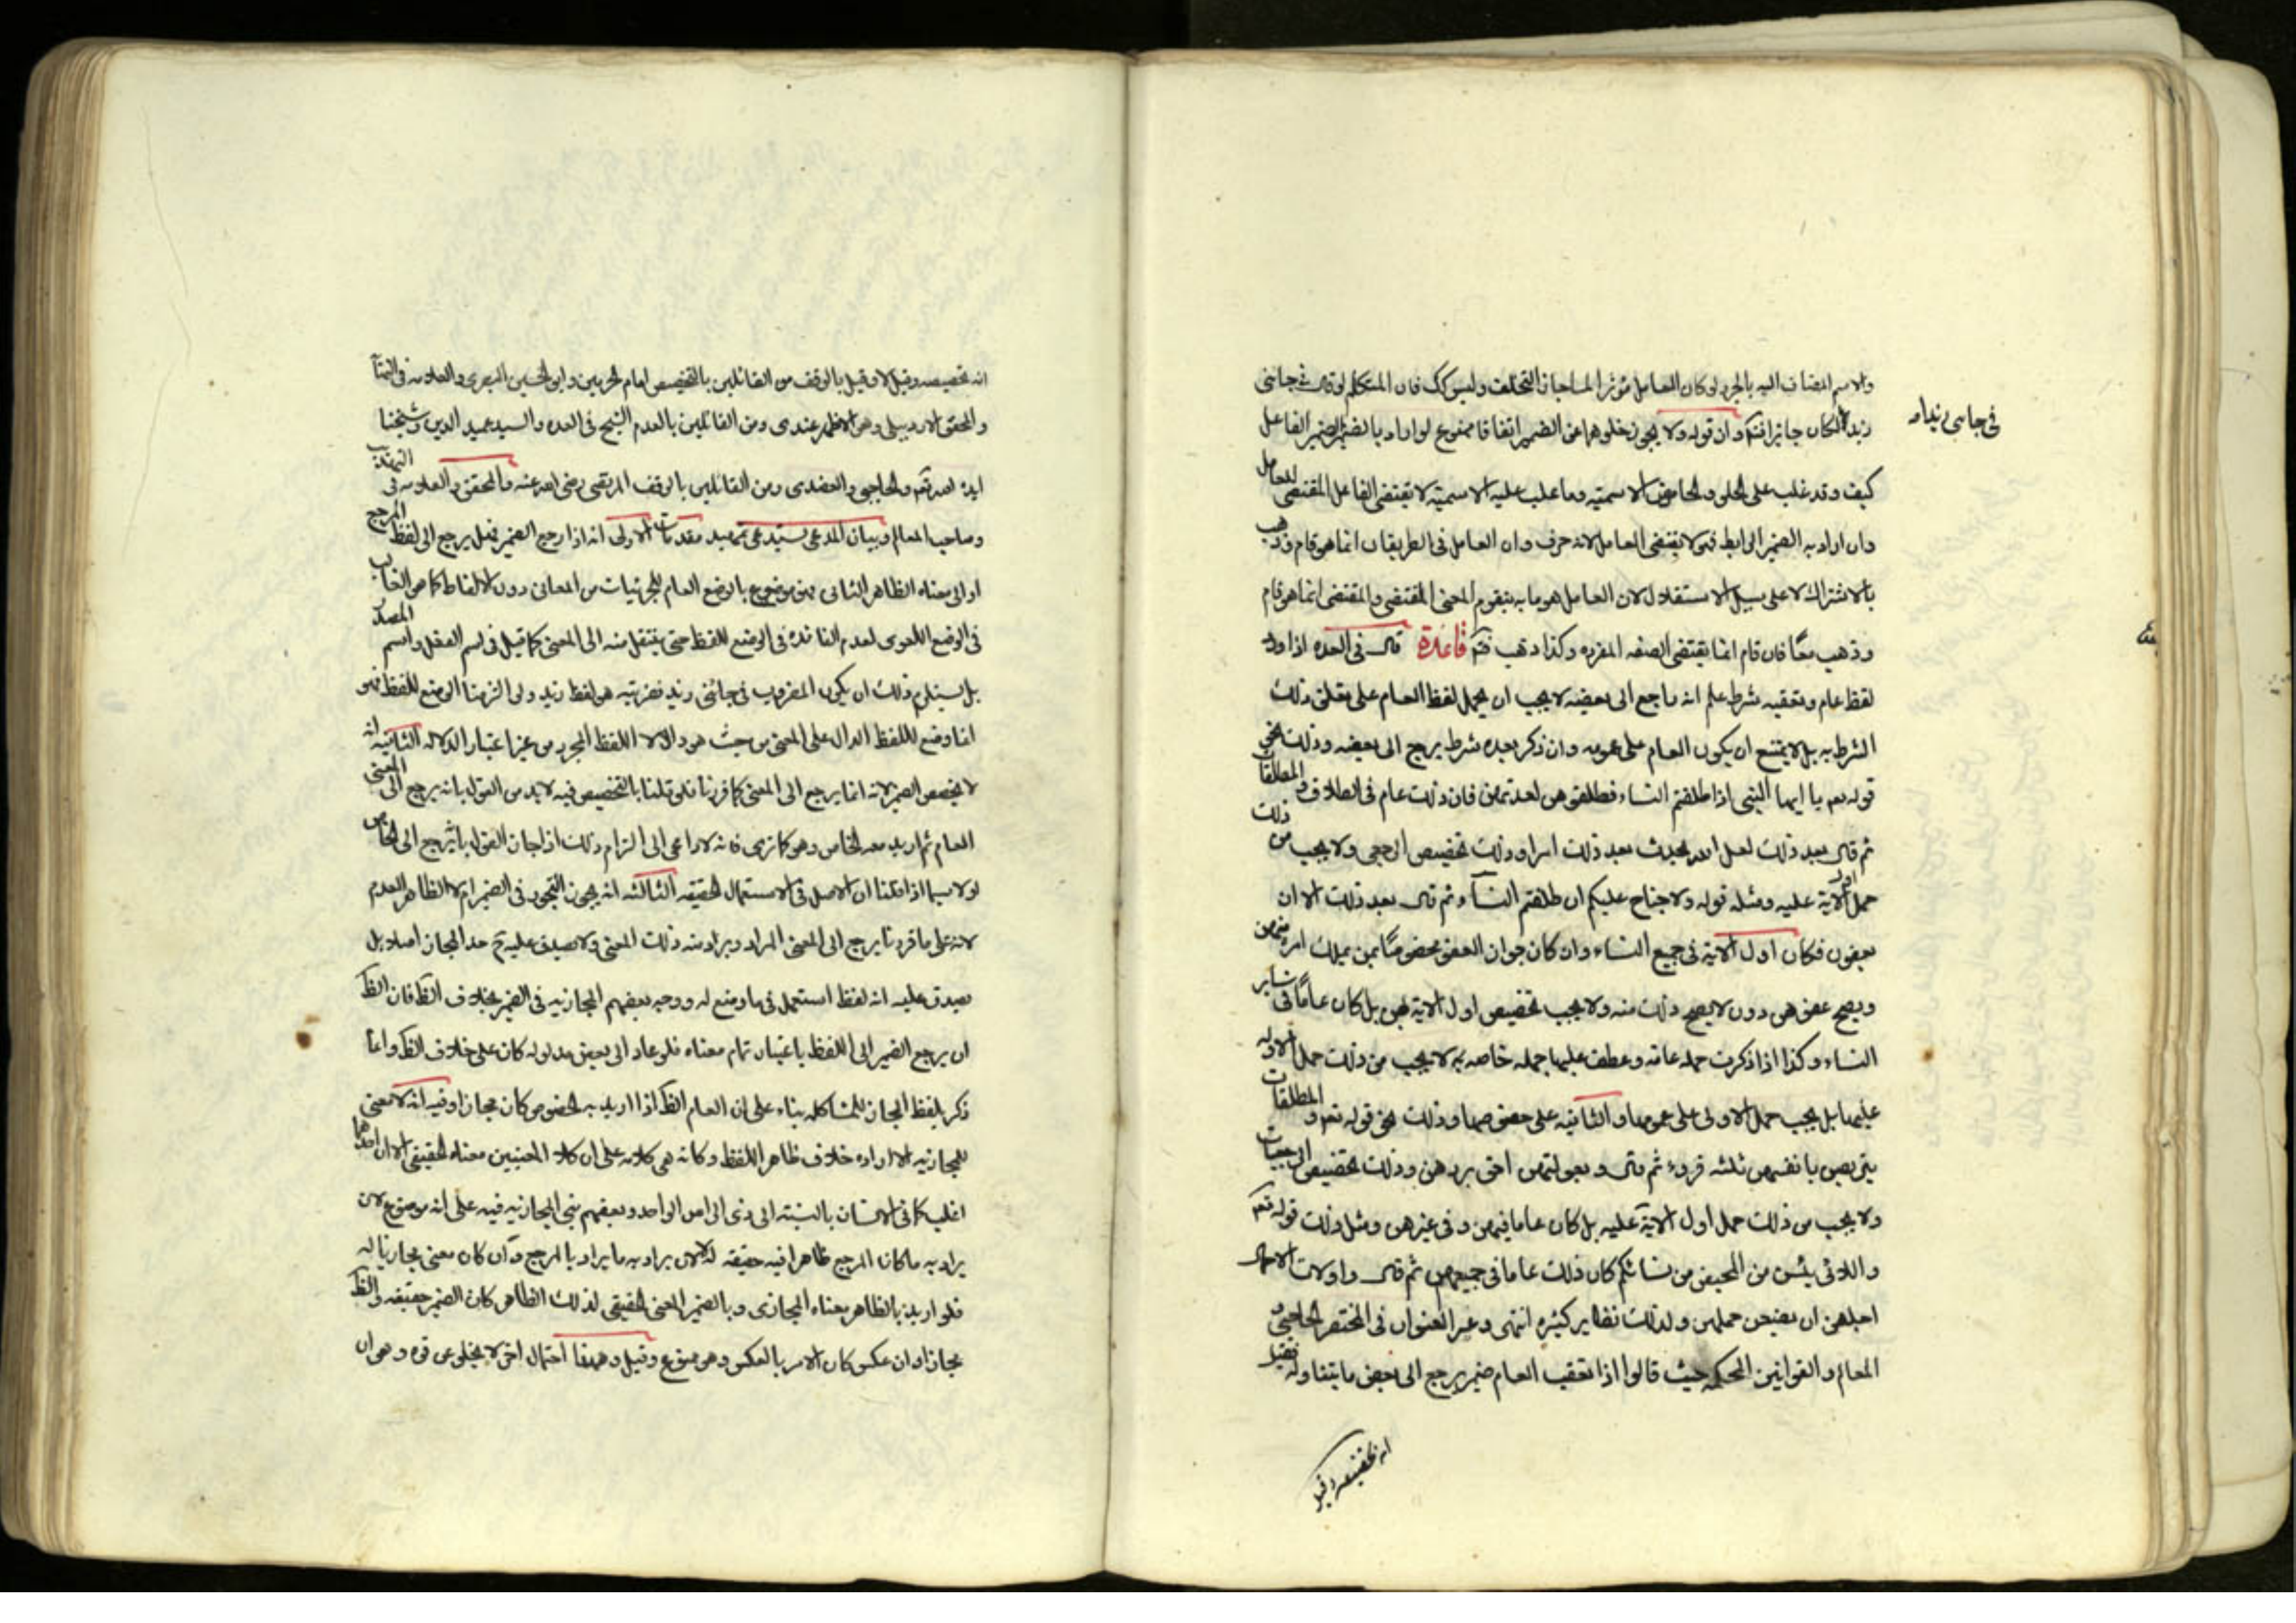 والاسم المضاف اليه بالجر لو كان العامل مؤثرا لما جاز التخلف وليس كك فان المتكلم لو قال في جائنى
زيد لكان جايزا انتهى وان قوله ولا يجوز خلوهما عن الضمير اتفاقا ممنوع لو اراد بالضمير الضمير الفاعل
في جاءنى زيدا
كيف وقد غلب على الحلى والحامض الاسمية وما غلب عليه الاسمية لا يقتضى الفاعل المقتضى للعامل
وان اراد به الضمير الرابط فهو لا يقتضى العامل لانه حرف وان العامل فى الطريقان انما هو قام وذهب
بالاشتراك لا على سبيل الاستقلال لان العامل هو ما به يتقوم المعنى المقتضى والمقتضى انما هو قام
وذهب معًا فان قام انما يقتضى الصفه المفرده وكذا ذهب فتم قاعدة قال فى العده اذا ورد
لفظ عام وتعقبه شرط علم انه راجع الى بعضه لا يجب ان يحمل لفظ العام على تعلق ذلك
الشرط به بل لا يمتنع ان يكون العام على عمومه وان ذكر بعده شرط يرجع الى بعضه وذلك نحو
قوله تعم يا ايها النبى اذا طلقتم النساء فطلقوهن لعدتهن فان ذلك عام فى الطلاق والمطلقات
ثم قال بعد ذلك لعل الله يحدث بعد ذلك امرا وذلك تخصيص الرجعى ولا يجب من ذلك
حمل اول الآية عليه ومثله قوله ولا جناح عليكم ان طلقتم النسآء ثم قال بعد ذلك الا ان
يعفون فكان اول الاية فى جميع النساء وان كان جواز العفو مخصوصًا بمن يملك امره منهن
ويصح عفوهن دون لا يصح ذلك منه ولا يجب تخصيص اول الاية بهن بل كان عامًا فى ساير
النساء وكذا اذا ذكرت جمله عامه وعطف عليها جمله خاصه به لا يجب من ذلك حمل الاوله
عليها بل يجب حمل الاولى على عمومها والثانيه على خصوصها وذلك نحو قوله تعم والمطلقات
يتربصن بانفسهن ثلثه قروء ثم قال وبعولتهن احق بردهن وذلك تخصيص الرجعيات
ولا يجب من ذلك حمل اول الآية عليه بل كان عاما فيهن وفى غيرهن ومثل ذلك قوله تعم
واللائى يئسن من المحيض من نسائكم كان ذلك عاما فى جميعهن ثم قال واولات الاحمال
اجلهن ان يضعن حملهن ولذلك نظاير كثيره انتهى وعبر العنوان فى المختصر الحاجبى و
المعالم والقوانين المحكمه حيث قالوا اذا تعقب العام ضمير يرجع الى بعض ما يتناوله فقيل
انه تخصيصه وقيل
انه تخصيصه وقيل لا وقيل بالوقف من القائلين بالتخصيص امام الحرمين وابو الحسين البصرى والعلامه فى النهآ
والمحقق الاردبيلى وهو الاظهر عندى ومن القائلين بالعدم الشيخ فى العده والسيد عميد الدين وشيخنا
ايده الله تعم والحاجبى والعضدى ومن القائلين بالوقف المرتضى رضى الله عنه والمحقق والعلامه فى التهذيب
وصاحب المعالم وبيان المدعى يستدعى تمهيد مقدمات الاولى انه اذا رجع الضمير فهل يرجع الى لفظ المرجع
او الى معناه الظاهر الثانى فهو موضوع بالوضع العام للجزئيات من المعانى دون الالفاظ كما هو الغالب
فى الوضع اللغوى لعدم الفائده فى الوضع للفظ حتى ينتقل منه الى المعنى كما قيل فى اسم الفعل واسم المصدر
بل يستلزم ذلك ان يكون المضروب فى جائنى زيد فضربته هو لفظ زيد ولو التزمنا الوضع للفظ فهو
انما وضع لللفظ الدال على المعنى من حيث هو دال لا اللفظ المجرد من غير اعتبار الدلاله الثانيه انه
لا يخصص الضمير لانه انما يرجع الى المعنى كما قررنا فلو قلنا بالتخصيص فيه لابد من القول بانه يرجع الى المعنى
العام ثم اريد معه الخاص وهو كما ترى فانه لا داعى الى التزام ذلك اذا جاز القول بانه يرجع الى الخاص
لو لا سيما اذا قلنا ان الاصل فى الاستعمال الحقيقه الثالثه انه يجوز التجوز فى الضمير ام لا الظاهر العدم
لانه على ما قررنا يرجع الى المعنى المراد ويراد منه ذلك المعنى ولا يصدق عليه ح حد المجاز اصلا بل
يصدق عليه انه لفظ استعمل فى ما وضع له ووجه بعضهم المجازيه فى الضمير بخلاف الظ فان الظ
ان يرجع الضمير الى اللفظ باعتبار تمام معناه فلو عاد الى بعض مدلوله كان على خلاف الظ وانما
ذكر بلفظ المجاز للمشاكله بناء على ان العام الظ اذا اريد به الخصوص كان مجازا وفيه انه لا معنى
للمجازيه الا اراده خلاف ظاهر اللفظ وكانه هى كلامه على ان كلا المعنيين معناه الحقيقى الا ان احدهما
اغلب كما فى الانسان بالنسبه الى ذى الراس الواحد وبعضهم بنى المجازيه فيه على انه موضوع لان
يراد به ما كان المرجع ظاهرا فيه حقيقه له لان يراد به ما يراد بالمرجع وان كان معنى مجازيا له
فلو اريد بالظاهر معناه المجازى وبالضمير المعنى الحقيقى لذلك الظاهر كان الضمير حقيقه والظ
مجازا وان عكس كان الامر بالعكس وهو ممنوع وقيل وههنا احتمال اخر لا يخلو عن قوه وهو ان